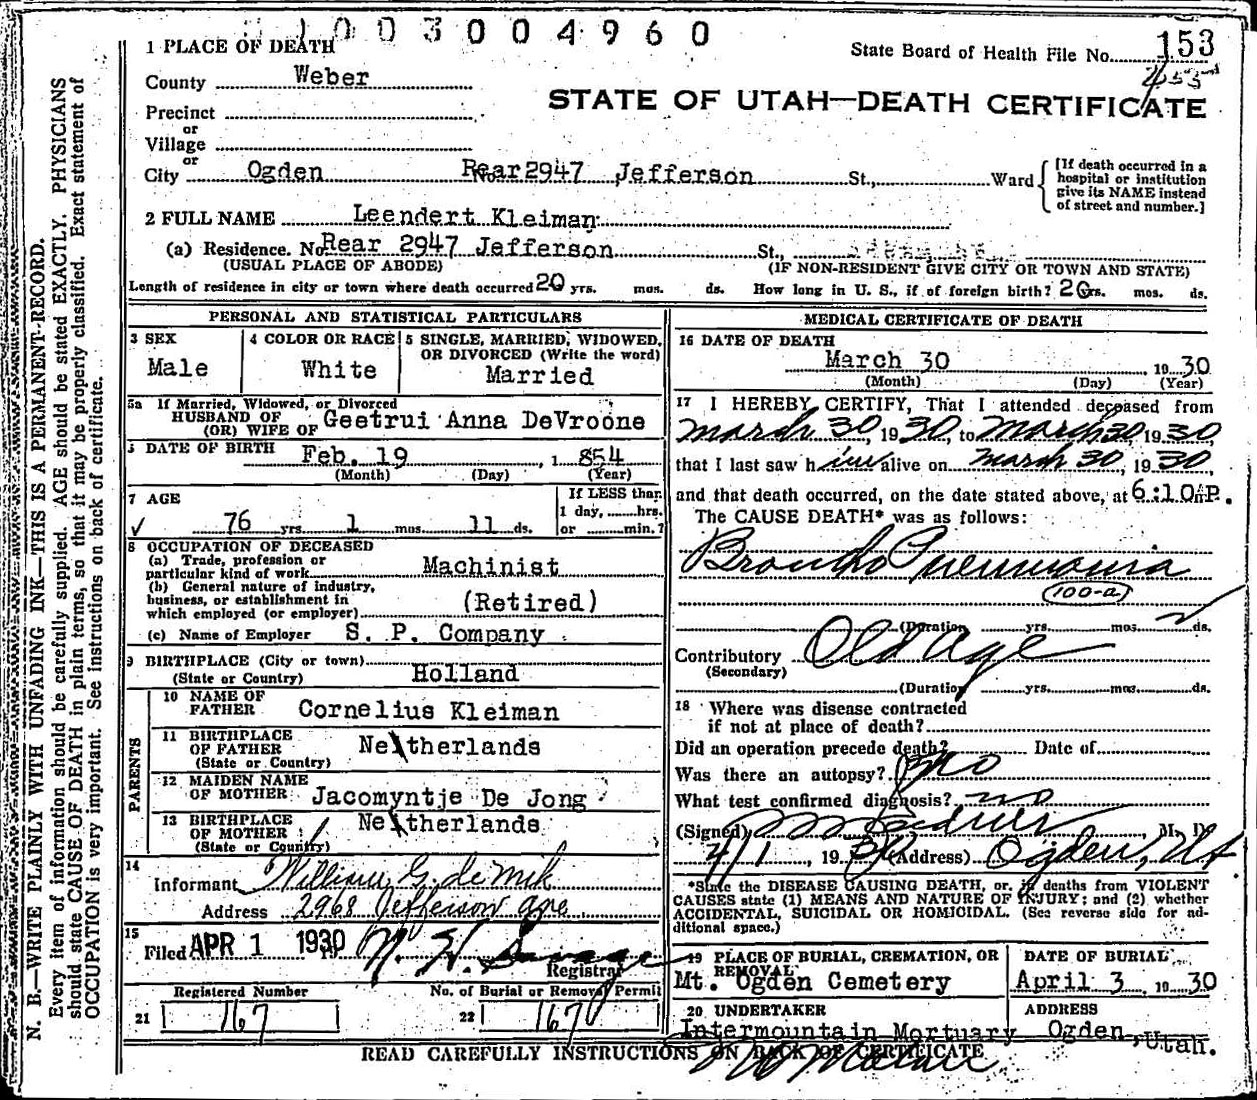 1003004960
1 PLACE OF DEATH
State Board of Health File No. 153
County Weber
STATE OF UTAH—DEATH CERTIFICATE
Precinct
or
Village
or
City Ogden Rear 2947 Jefferson St., Ward
[If death occurred in a
hospital or institution
give its NAME instead
of street and number.]
2 FULL NAME Leendert Kleiman
(a) Residence. No. Rear 2947 Jefferson St.,
(USUAL PLACE OF ABODE) (IF NON-RESIDENT GIVE CITY OR TOWN AND STATE)
Length of residence in city or town where death occurred 20 yrs. mos. ds. How long in U. S., if of foreign birth? 20 yrs. mos. ds.
N. B.—WRITE PLAINLY WITH UNFADING INK—THIS IS A PERMANENT RECORD.
Every item of information should be carefully supplied. AGE should be stated EXACTLY. PHYSICIANS
should state CAUSE OF DEATH in plain terms, so that it may be properly classified. Exact statement of
OCCUPATION is very important. See instructions on back of certificate.
PERSONAL AND STATISTICAL PARTICULARS
3 SEX
Male
4 COLOR OR RACE
White
5 SINGLE, MARRIED, WIDOWED,
OR DIVORCED (Write the word)
Married
5a If Married, Widowed, or Divorced
HUSBAND OF
(OR) WIFE OF Geetrui Anna DeVroone
DATE OF BIRTH Feb. 19, 1854
(Month) (Day) (Year)
7 AGE
76 yrs. 1 mos. 11 ds.
If LESS than
1 day, hrs.
or min.?
8 OCCUPATION OF DECEASED
(a) Trade, profession or
particular kind of work Machinist
(b) General nature of industry,
business, or establishment in
which employed (or employer) (Retired)
(c) Name of Employer S. P. Company
9 BIRTHPLACE (City or town)
(State or Country) Holland
PARENTS
10 NAME OF
FATHER Cornelius Kleiman
11 BIRTHPLACE
OF FATHER Netherlands
(State or Country)
12 MAIDEN NAME
OF MOTHER Jacomyntje De Jong
13 BIRTHPLACE
OF MOTHER Netherlands
(State or Country)
14
Informant William G. de Mik
Address 2968 Jefferson Ave
15
Filed APR 1 1930
Registrar
Registered Number
21 167
No. of Burial or Removal Permit
22 167
MEDICAL CERTIFICATE OF DEATH
16 DATE OF DEATH
March 30 1930
(Month) (Day) (Year)
17 I HEREBY CERTIFY, That I attended deceased from
March 30, 1930, to March 30 1930,
that I last saw him alive on March 30, 1930
and that death occurred, on the date stated above, at 6:10 P.
The CAUSE DEATH* was as follows:
Broncho Pneumonia
100-a
(Duration yrs. mos. ds.
Contributory Old age
(Secondary)
(Duration yrs. mos. ds.
18 Where was disease contracted
if not at place of death?
Did an operation precede death? Date of
Was there an autopsy? no
What test confirmed diagnosis? no
(Signed) , M. D.
4/1, 1930 (Address) Ogden, Ut
*State the DISEASE CAUSING DEATH, or, in deaths from VIOLENT
CAUSES state (1) MEANS AND NATURE OF INJURY; and (2) whether
ACCIDENTAL, SUICIDAL OR HOMICIDAL. (See reverse side for ad-
ditional space.)
19 PLACE OF BURIAL, CREMATION, OR
REMOVAL
Mt. Ogden Cemetery
DATE OF BURIAL
April 3, 1930
20 UNDERTAKER
Intermountain Mortuary
ADDRESS
Ogden, Utah.
READ CAREFULLY INSTRUCTIONS ON BACK OF CERTIFICATE